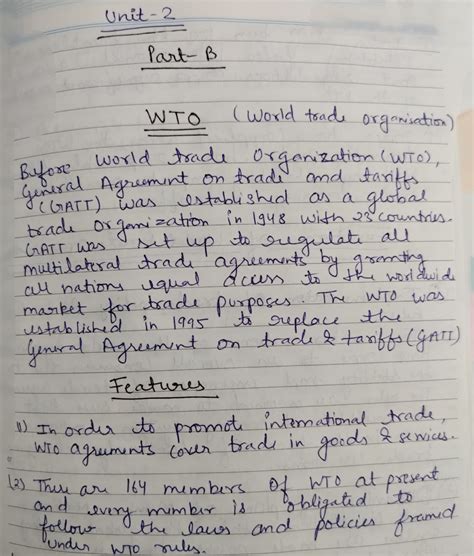 Unit-2
Part-B
WTO (World trade organisation)
Before World trade Organization (WTO),
General Agreement on trade and tariffs
(GATT) was established as a global
trade organization in 1948 with 23 countries.
GATT was set up to regulate all
multilateral trade agreements by granting
all nations equal access to the worldwide
market for trade purposes. The WTO was
established in 1995 to replace the
General Agreement on trade & tariffs (GATT)
Features
1) In order to promote international trade,
WTO agreements cover trade in goods & services.
(2) There are 164 members of WTO at present
and every member is obligated to
follow the laws and policies framed
under WTO rules.